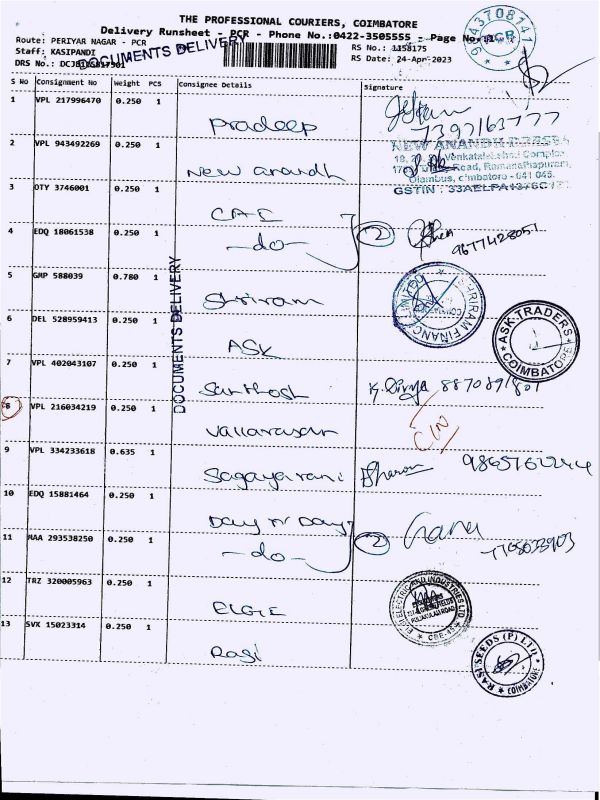 THE PROFESSIONAL COURIERS, COIMBATORE
Delivery Runsheet - PCR - Phone No.:0422-3505555 - Page No.:
Route: PERIYAR NAGAR - PCR
DOCUMENTS DELIVERY
RS No.: 1158175
Staff: KASIPANDI
RS Date: 24-Apr-2023
DRS No.:
S No Consignment No Weight PCS Consignee Details Signature
1 VPL 217996470 0.250 1 Pradeep 7397163777
2 VPL 943492269 0.250 1 New anandh
NEW ANANDH
GSTIN : 33AELPA
3 OTY 3746001 0.250 1
4 EDQ 18061538 0.250 1 -do- 2 9677428051
5 GMP 588039 0.780 1 Shriram
SHRIRAM FINANCE LIMITED
DOCUMENTS DELIVERY
6 DEL 528959413 0.250 1 ASK
ASK TRADERS
COIMBATORE
7 VPL 402043107 0.250 1 Santhosh K. Divya 8870891801
8 VPL 216034219 0.250 1 Vallarasan
9 VPL 334233618 0.635 1 Sagayarani
10 EDQ 15881464 0.250 1 Day N Day
11 MAA 293538250 0.250 1 -do- 2
12 TRZ 320005963 0.250 1 ELGI
ELGI ELECTRIC AND INDUSTRIES LTD.
13 SVX 15023314 0.250 1 Rasi
RASI SEEDS (P) LTD.
COIMBATORE